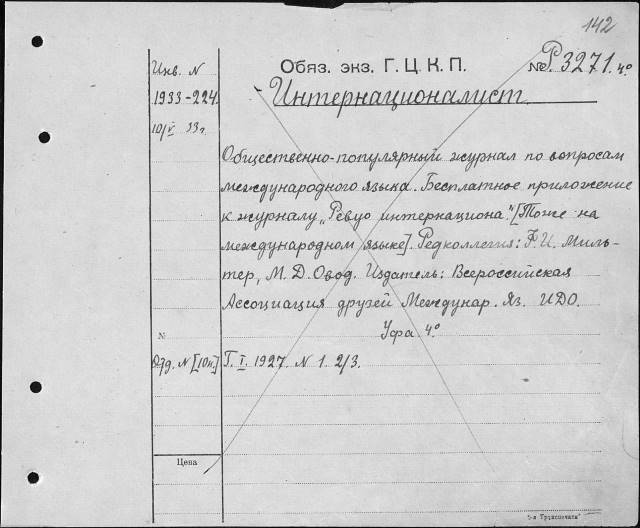 142
Инв. N Обяз. экз. Г. Ц. К. П. № Р3271. 4°
1933-224. Интернационалист.
10/V 33г.
Общественно-популярный журнал по вопросам
международного языка. Бесплатное приложение
к журналу „Ревуо интернациона.“ [Тоже на
международном языке]. Редколлегия: Г. И. Миль-
тер, М. Д. Овод. Издатель: Всероссийская
Ассоциация друзей Междунар. Яз. ИДО.
Уфа 4°
№
N [10и] Г. I. 1927. N 1. 2/3.
Цена